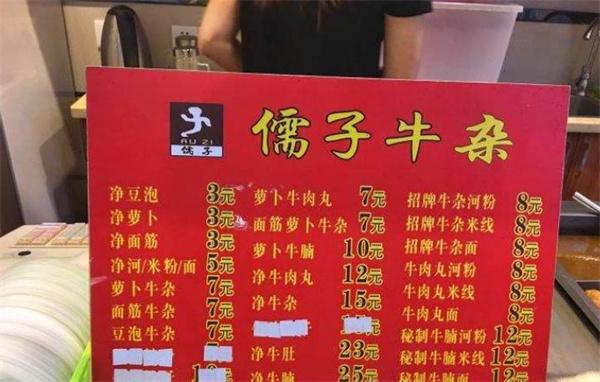 儒子牛杂
RU ZI
儒子
净豆泡 3元
净萝卜 3元
净面筋 3元
净河/米粉/面 5元
萝卜牛杂 7元
面筋牛杂 7元
豆泡牛杂 7元
萝卜牛肉丸 7元
面筋萝卜牛杂 7元
萝卜牛腩 10元
净牛肉丸 12元
净牛杂 15元
净牛肚 23元
净牛腩 25元
招牌牛杂河粉 8元
招牌牛杂米线 8元
招牌牛杂面 8元
牛肉丸河粉 8元
牛肉丸米线 8元
牛肉丸面 8元
秘制牛腩河粉 12元
秘制牛腩米线 12元
秘制牛腩面 12元